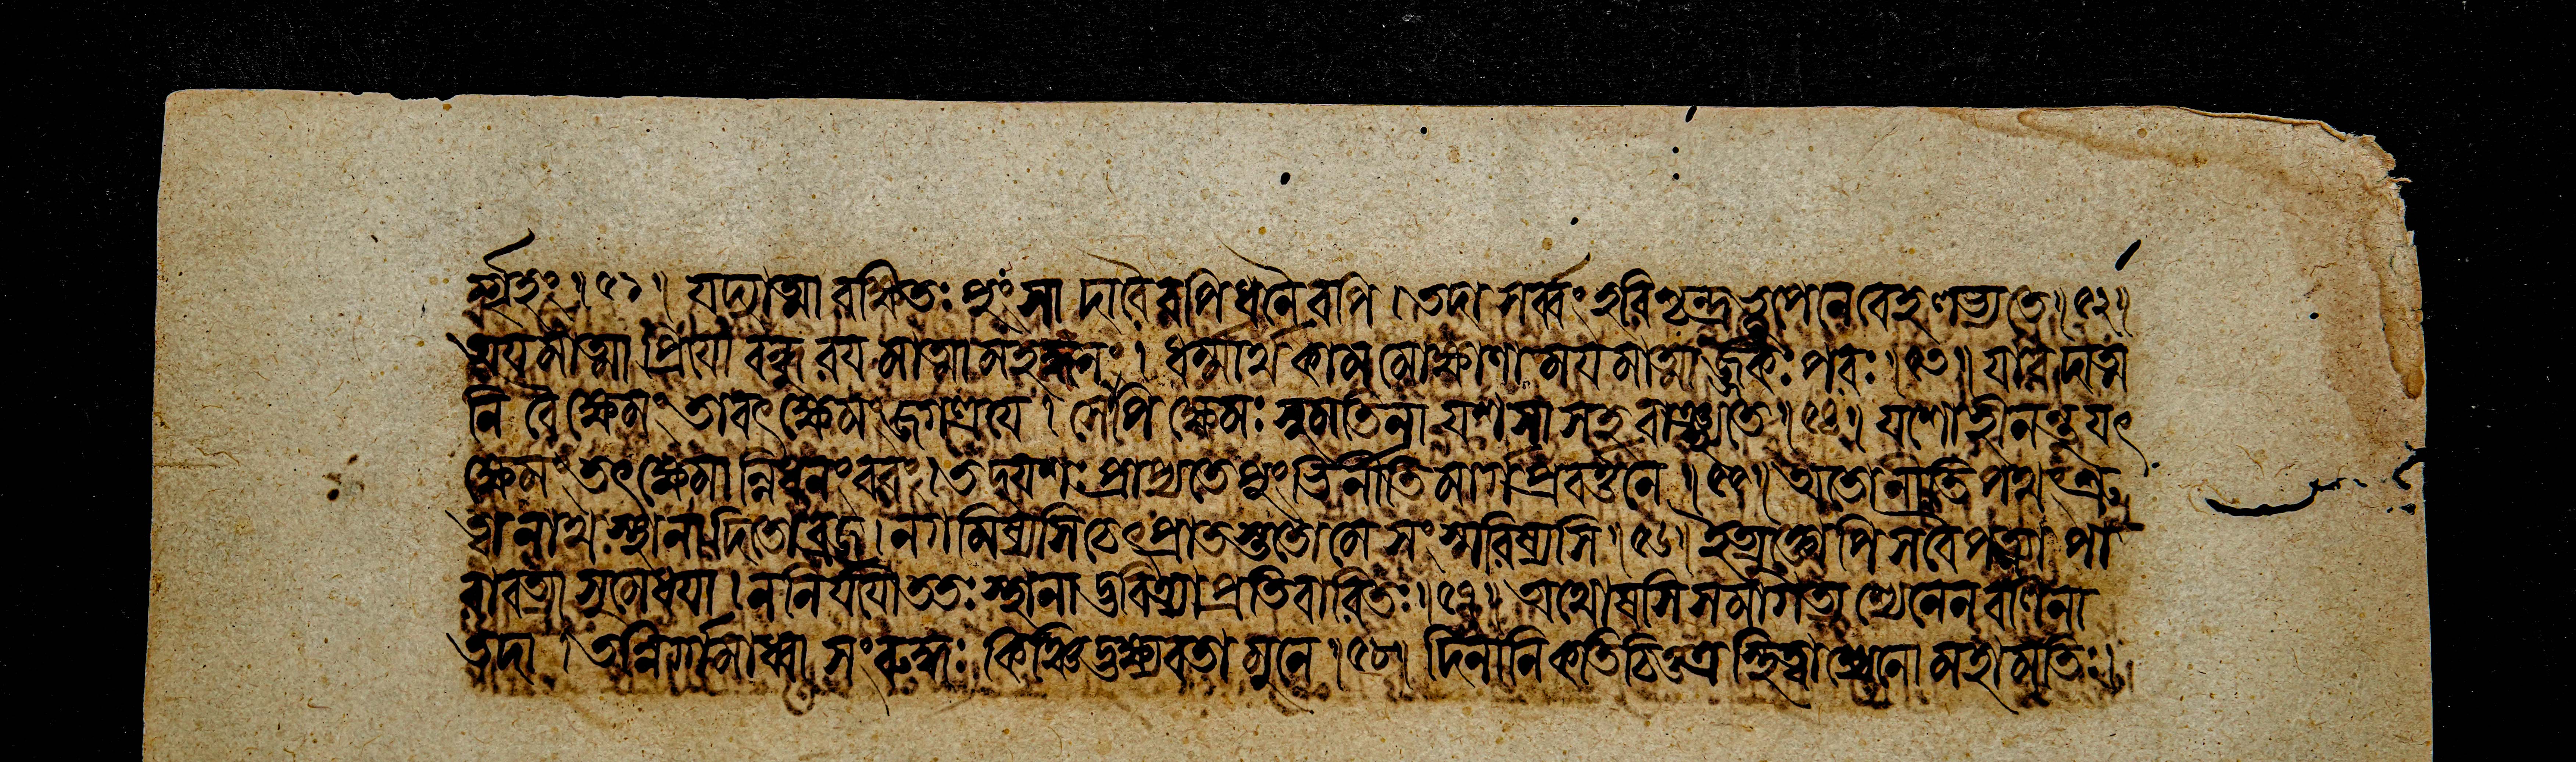 র্ল্লভং ॥ ৫১ ॥ যদাত্মা রক্ষিতঃ পুংসা দারৈরপি ধনৈরপি । তদা সর্ব্বং হরিশ্চন্দ্রভূপেনেবেহ লভ্যতে ॥ ৫২ ॥
অয়মাত্মা প্রিয়ো বন্ধুরয়মাত্মা মহদ্ধনং । ধর্ম্মার্থকামমোক্ষাণাময়মাত্মার্জ্জকঃ পরঃ ॥ ৫৩ ॥ যাবদাত্ম
নি বৈ ক্ষেমং তাবৎ ক্ষেমং জগত্রয়ে । সোপি ক্ষেমঃ সুমতিনা যশসা সহ বাঞ্ছ্যতে ॥ ৫৪ ॥ যশোহীনন্তু যৎ
ক্ষেমং তৎ ক্ষেমান্নিধনং বরং । তদ্যশঃ প্রাপ্যতে পুংভির্নীতিমার্গপ্রবর্ত্তনে ॥ ৫৫ ॥ অতো নীতিপথং শ্রু
ত্বা নাথ স্থানাদিতো ব্রজ । ন গমিষ্যসি চেৎ প্রাতস্ততো মে সংস্মরিষ্যসি ॥ ৫৬ ॥ ইত্যুক্তোপি স বৈ পত্ন্যা পা
রাবত্যা সুমেধয়া । ন নির্যযৌ ততঃ স্থানাদ্ভবিত্র্যা প্রতিবারিতঃ ॥ ৫৭ ॥ অথোষসি সমাগত্য শ্যেনেন বলিনা
তদা । তন্নির্গমাধ্বা সংরুদ্ধঃ কিঞ্চিদ্ভক্ষ্যবতা মুনে ॥ ৫৮ ॥ দিনানি কতিচিত্তত্র স্থিত্বা শ্যেনো মহামতিঃ ।